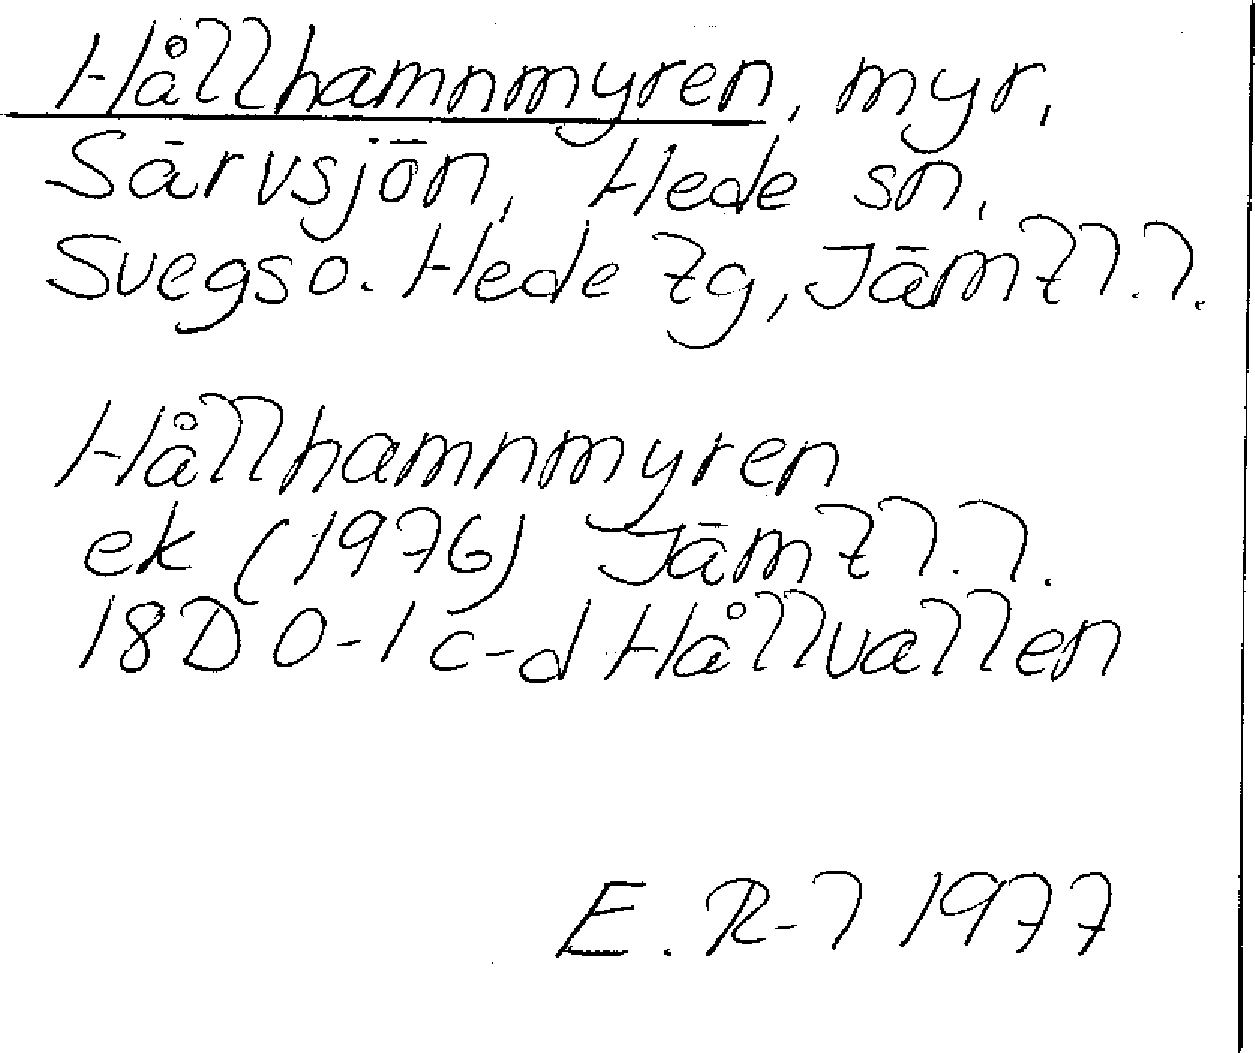 Hållhamnmyren, myr,
Särvsjön, Hede sn,
Svegs o. Hede tg, Jämtl.l.
Hållhamnmyren
ek (1976) Jämtl.l.
18D 0-1 c-d Hållvallen
E. R-l 1977